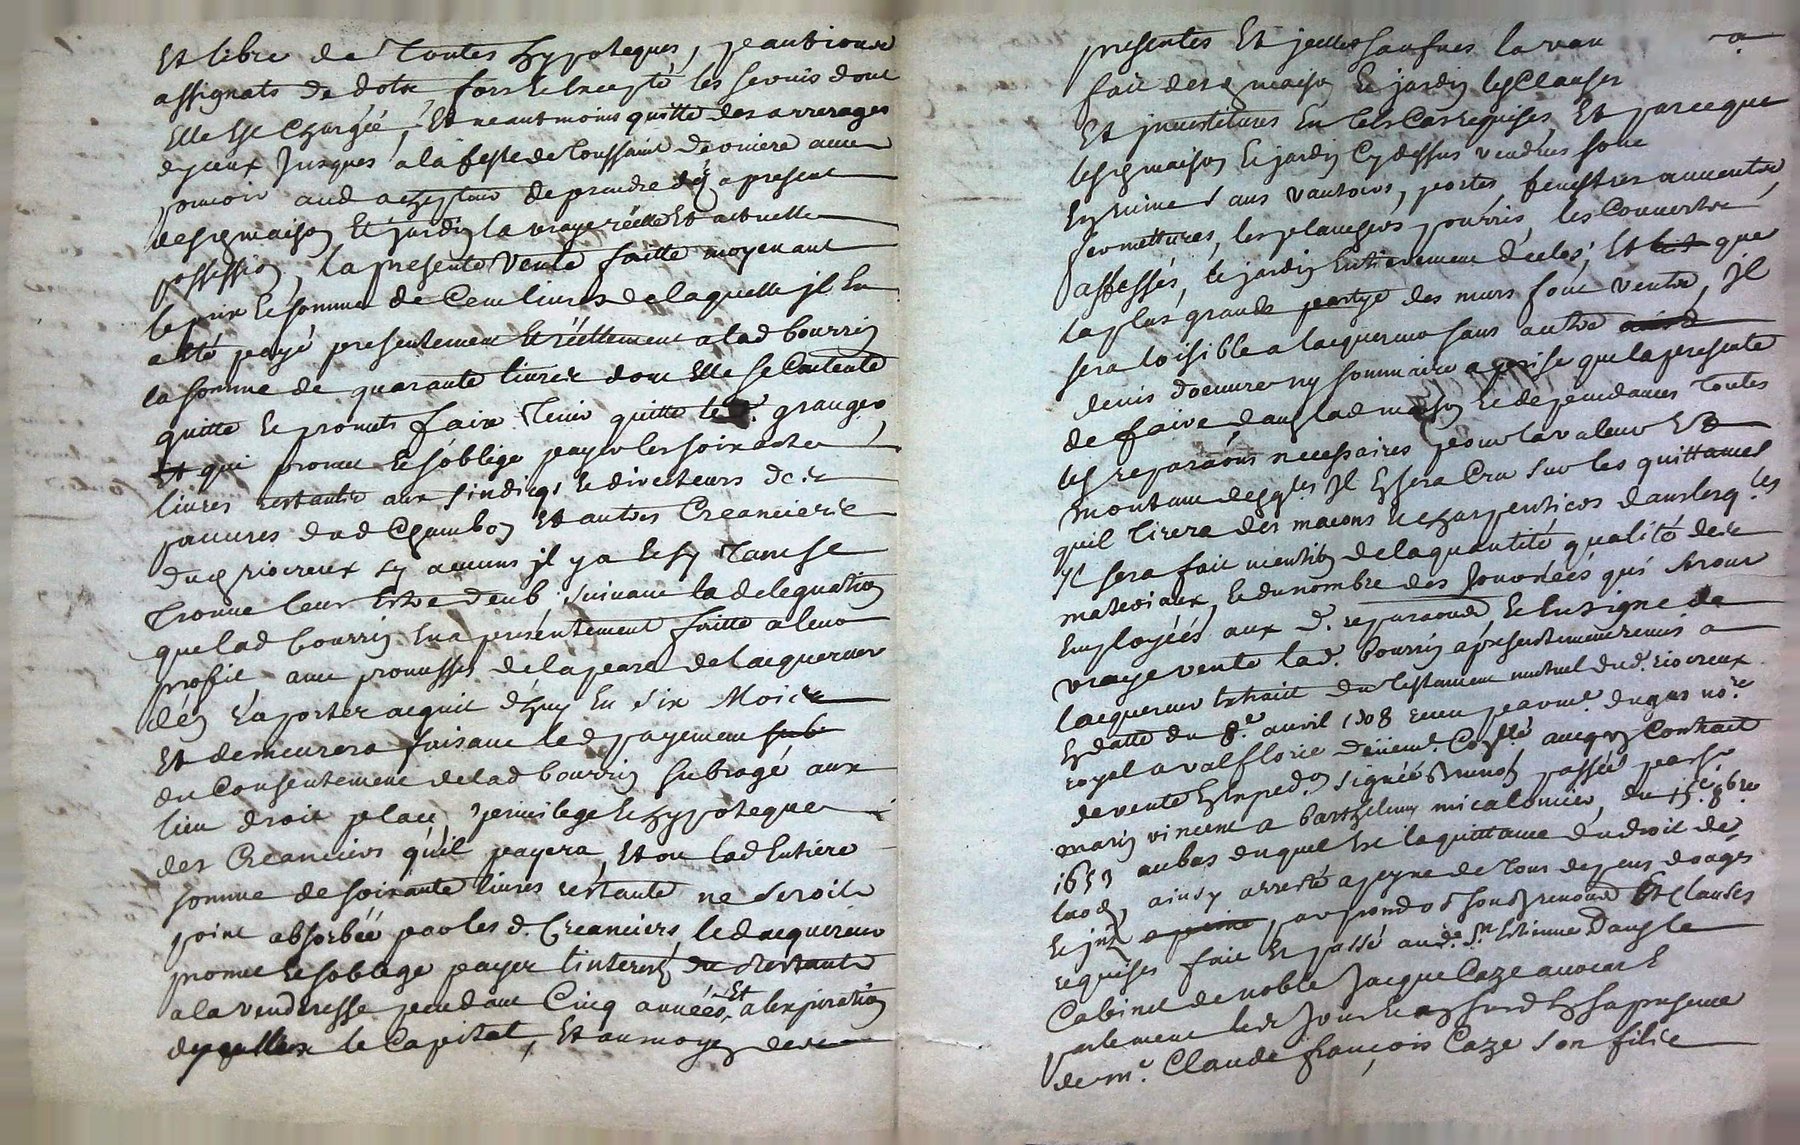 Et libre de toutes hypoteques, peantions
assignats de dotx fors Et Excepté les servis dont
Elle Est chargée, Et neantmoins quitte des arrerages
dyceux Jusques a la feste de Toussaint derniere avec
pouvoir aud achepteur de prendre dés a present
desd maison Et jardin la vraye réelle Et actuelle
possession, la presente Vente faitte moyenant
le prix Et somme de Cent livres de laquelle jl En
a Eté payé presentement Et réellement a lad bourrin
la somme de quarante livres dont Elle se Contente
quitte Et promet faire Tenir quitte led. granger
qui promet Et s'oblige payer les soixante
livres restante aux sindics Et directeurs des
pauvres dud Chambon Et autres Creanciers
dud riocreux sy aucuns jl y a Et sy Tant se
Trouve leur Estre deub, suivant la delegation
que lad bourrin En a présentement faitte a leur
profit avec promesse de la part de lacquereur
d'En raporter acquit d'huy En six Mois
Et demeurera faisant led payement
du Consentement de lad bourrin subrogé aux
lieu droit place, privilege Et hypoteque
des Creanciers qu'il payera, Et ou lad Entiere
somme de soixante livres restante ne seroit
point absorbée par les d. Creanciers, led acquereur
promet Et s'oblige payer l'interest du restant
a la venderesse pendant Cinq années, Et a l'expiration
dycelles le Capital, Et au moyen des
presentes Et
fait desd maison Et jardin les Clauses
Et jnvestitures En tels Cas requises, Et parce que
lesd maison Et jardin Cydessus vendues sont
En ruine sans, portes, fenestres aucunes
fermettures, les planchers pourris, les Couverts
affessés, le jardin Entierement déclos, Et que
la plus grande partye des murs font ventre, jl
sera loisible a lacquereur sans autre
devis d'oeuvre ny sommaire aprise que la presente
de faire dans lad maison Et dependances toutes
les reparaons necessaires pour la valeur Et
montant desquelles jl En sera Cru sur les quittances
quil Tirera des macons Et charpentiers dans lesq.les
jl sera fait mention de la quantité qualité des
materiaux, Et du nombre des journées qui seront
Employées aux d. reparaons, Et En signe de
vraye vente lad. bourrin a presentement remis a
lacquereur Extrait du Testament mutuel dud. riocreux
En datte du 8.e avril 1708 receu par me. dugas no.re
royal a valflorie, auec un Contrait
de vente Exped. signée Brunon passée par
marin vincent a barthelemy micalonier, du 15.e 8bre
1653 au bas duquel Est la quittance du droit de
laod, ainsy arresté a peyne de Tous depens domages
Et jn.ts, Et Clauses
requises fait Et passé aud. St. Estienne dans le
Cabinet de noble Jacque Caze avocat E
parlement led Jour Et an susd En sa presence
de m.e Claude françois Caze son fils